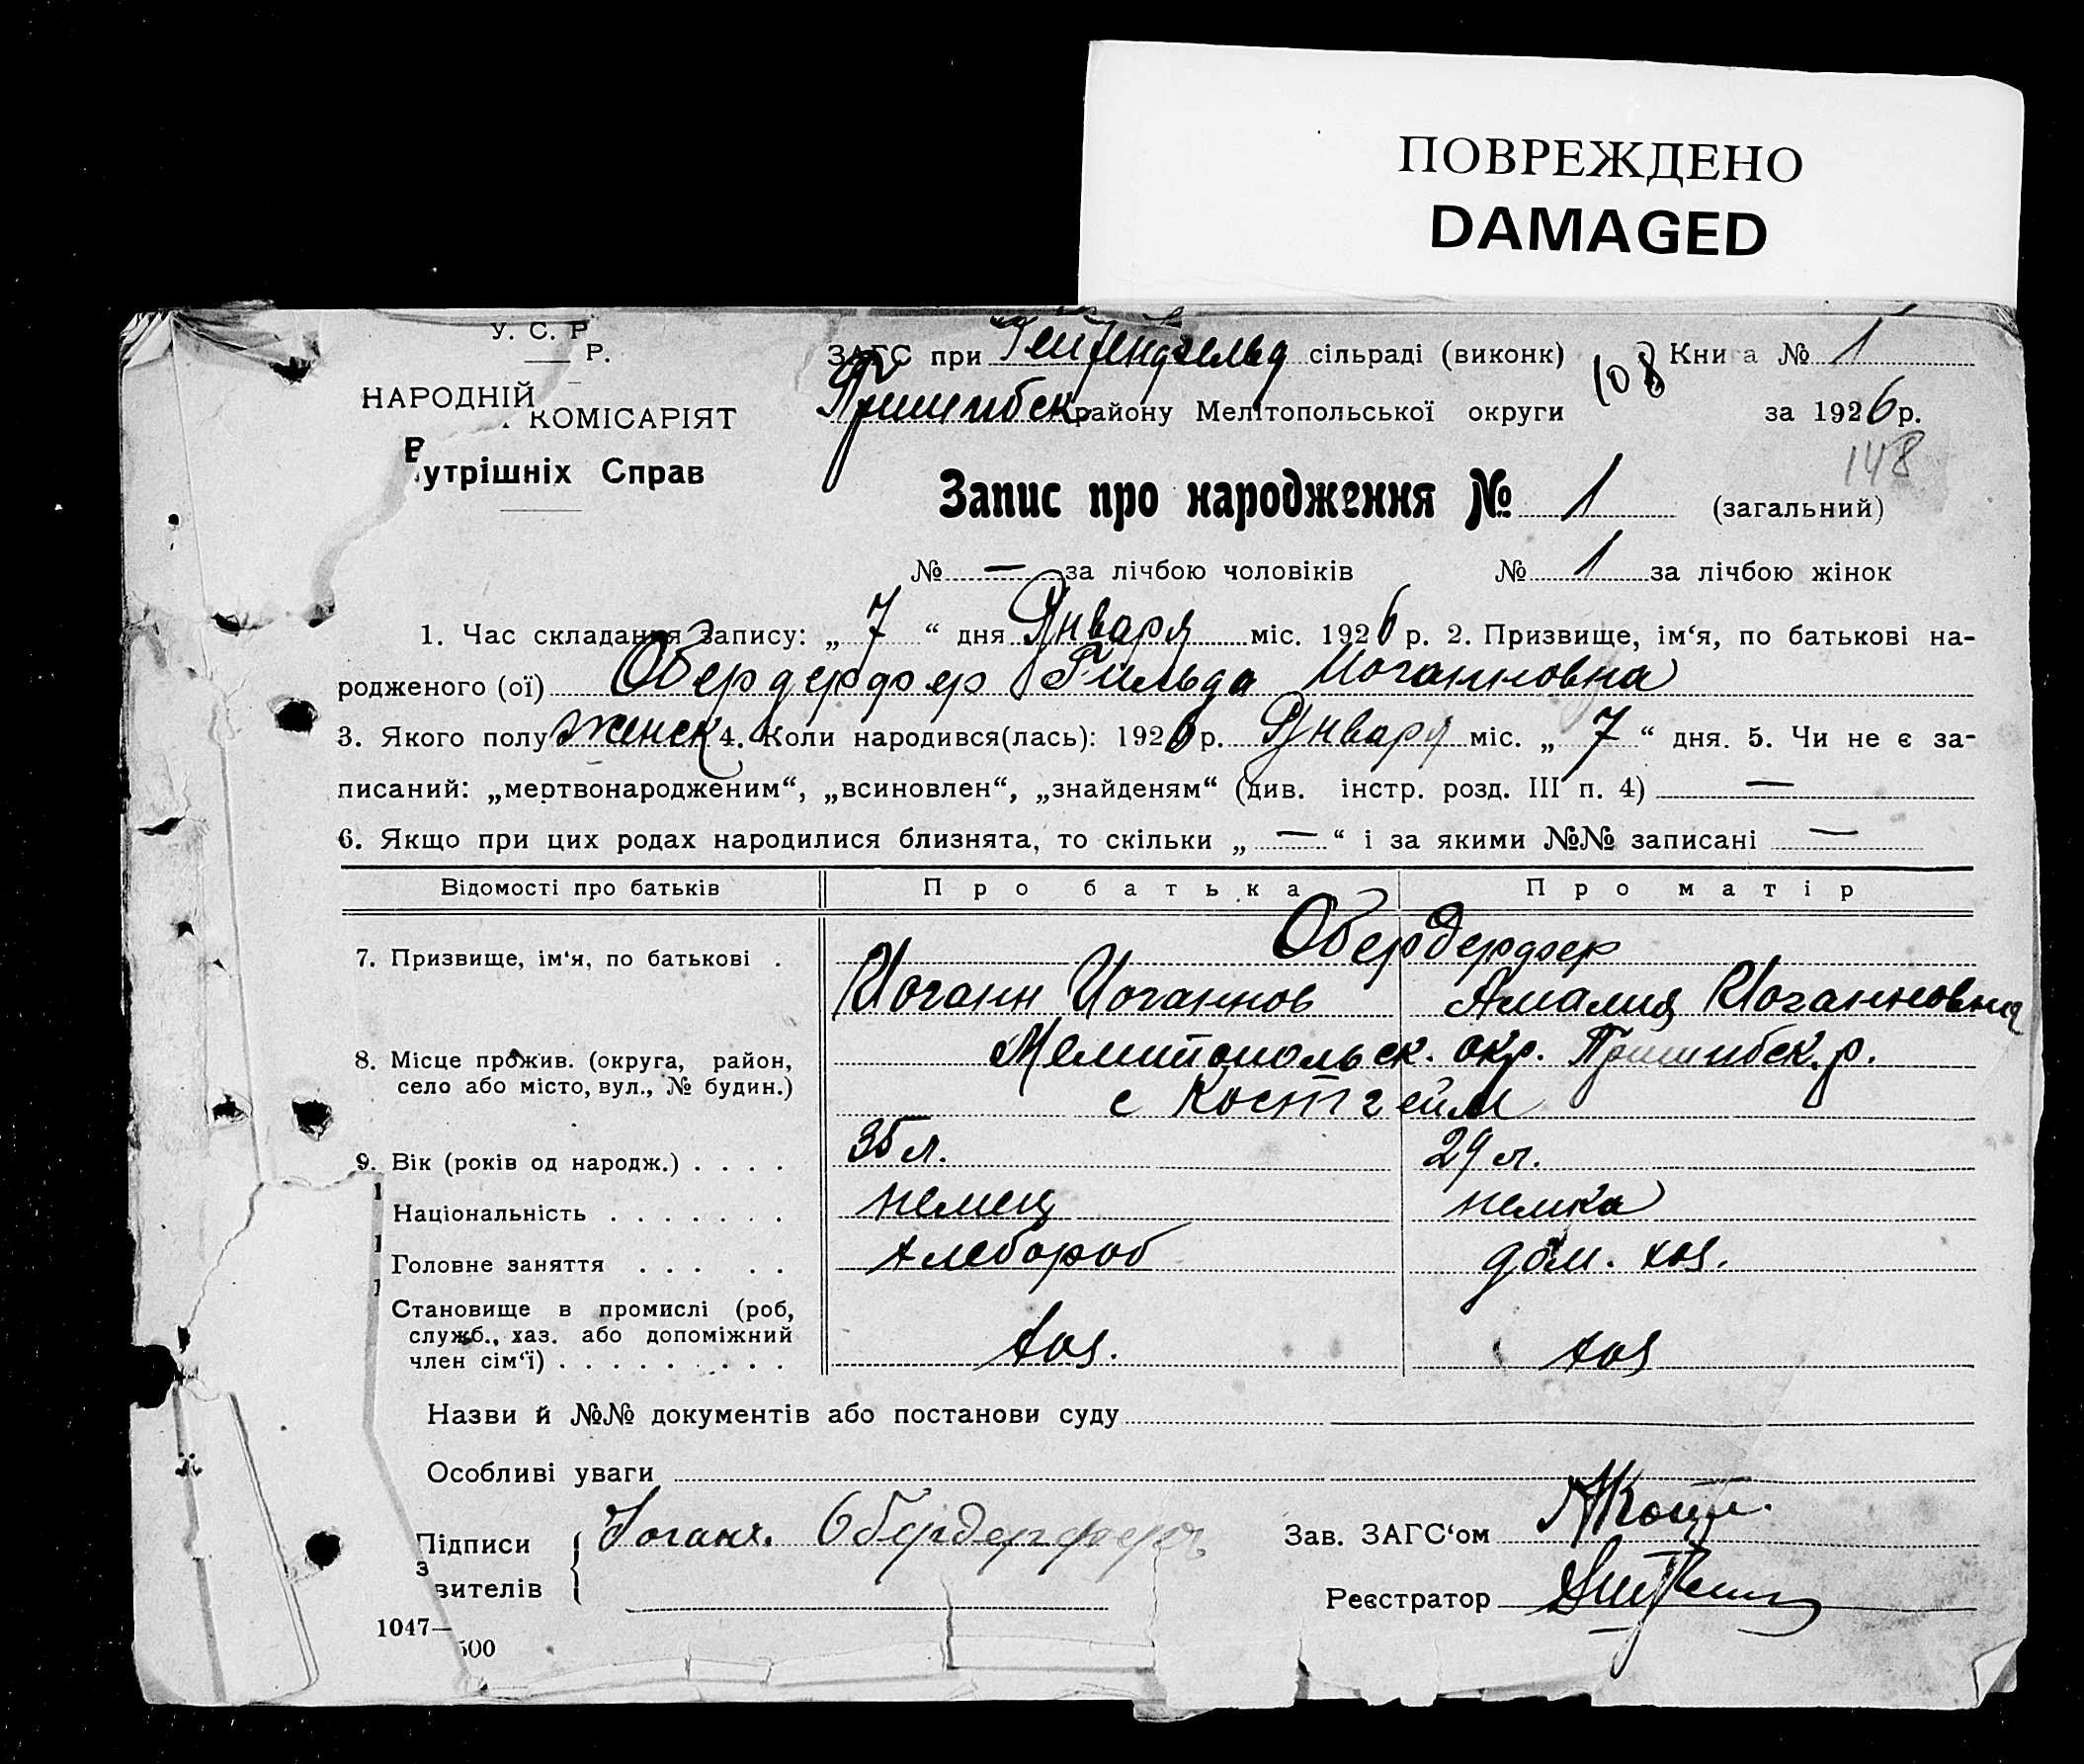 ПОВРЕЖДЕНО
DAMAGED
У. С. Р
Р.
НАРОДНІЙ
КОМІСАРІЯТ
В
утрішніх Справ
ЗАГС при сільраді (виконк) 108 Книга № 1
Пришибск. району Мелітопольської округи за 1926 р.
148
Запис про народження № 1 (загальний)
№ — за лічбою чоловіків № 1 за лічбою жінок
1. Час складання запису: „ 7 “ дня Января міс. 1926 р. 2. Призвище, ім‘я, по батькові на-
родженого (ої) Обердерфер Гильда Иоганновна
3. Якого полу женск 4. Коли народився(лась): 1926 р. Января міс. „ 7 “ дня. 5. Чи не є за-
писаний: „мертвонародженим“, „всиновлен“, „знайденям“ (див. інстр. розд. III п. 4) —
6. Якщо при цих родах народилися близнята, то скільки „ — “ і за якими №№ записані —
Відомості про батьків Про батька Про матір
7. Призвище, ім‘я, по батькові . Обердерфер
Иоганн Иоганнов Амалия Иоганновна
8. Місце прожив. (округа, район, Мелитопольск. окр. Пришибск. р.
село або місто, вул., № будин.) с Костгейм
9. Вік (років од народж.) . . . . 35 л. 29 л.
Національність . . . . . . . немец немка
Головне заняття . . . . . хлебороб дом. хоз.
Становище в промислі (роб,
служб., хаз. або допоміжний хоз. хоз
член сім‘ї) . . . . . . . . .
Назви й №№ документів або постанови суду
Особливі уваги
Підписи Иоганн. Обердерферъ Зав. ЗАГС‘ом
з
вителів Реєстратор
1047—
500